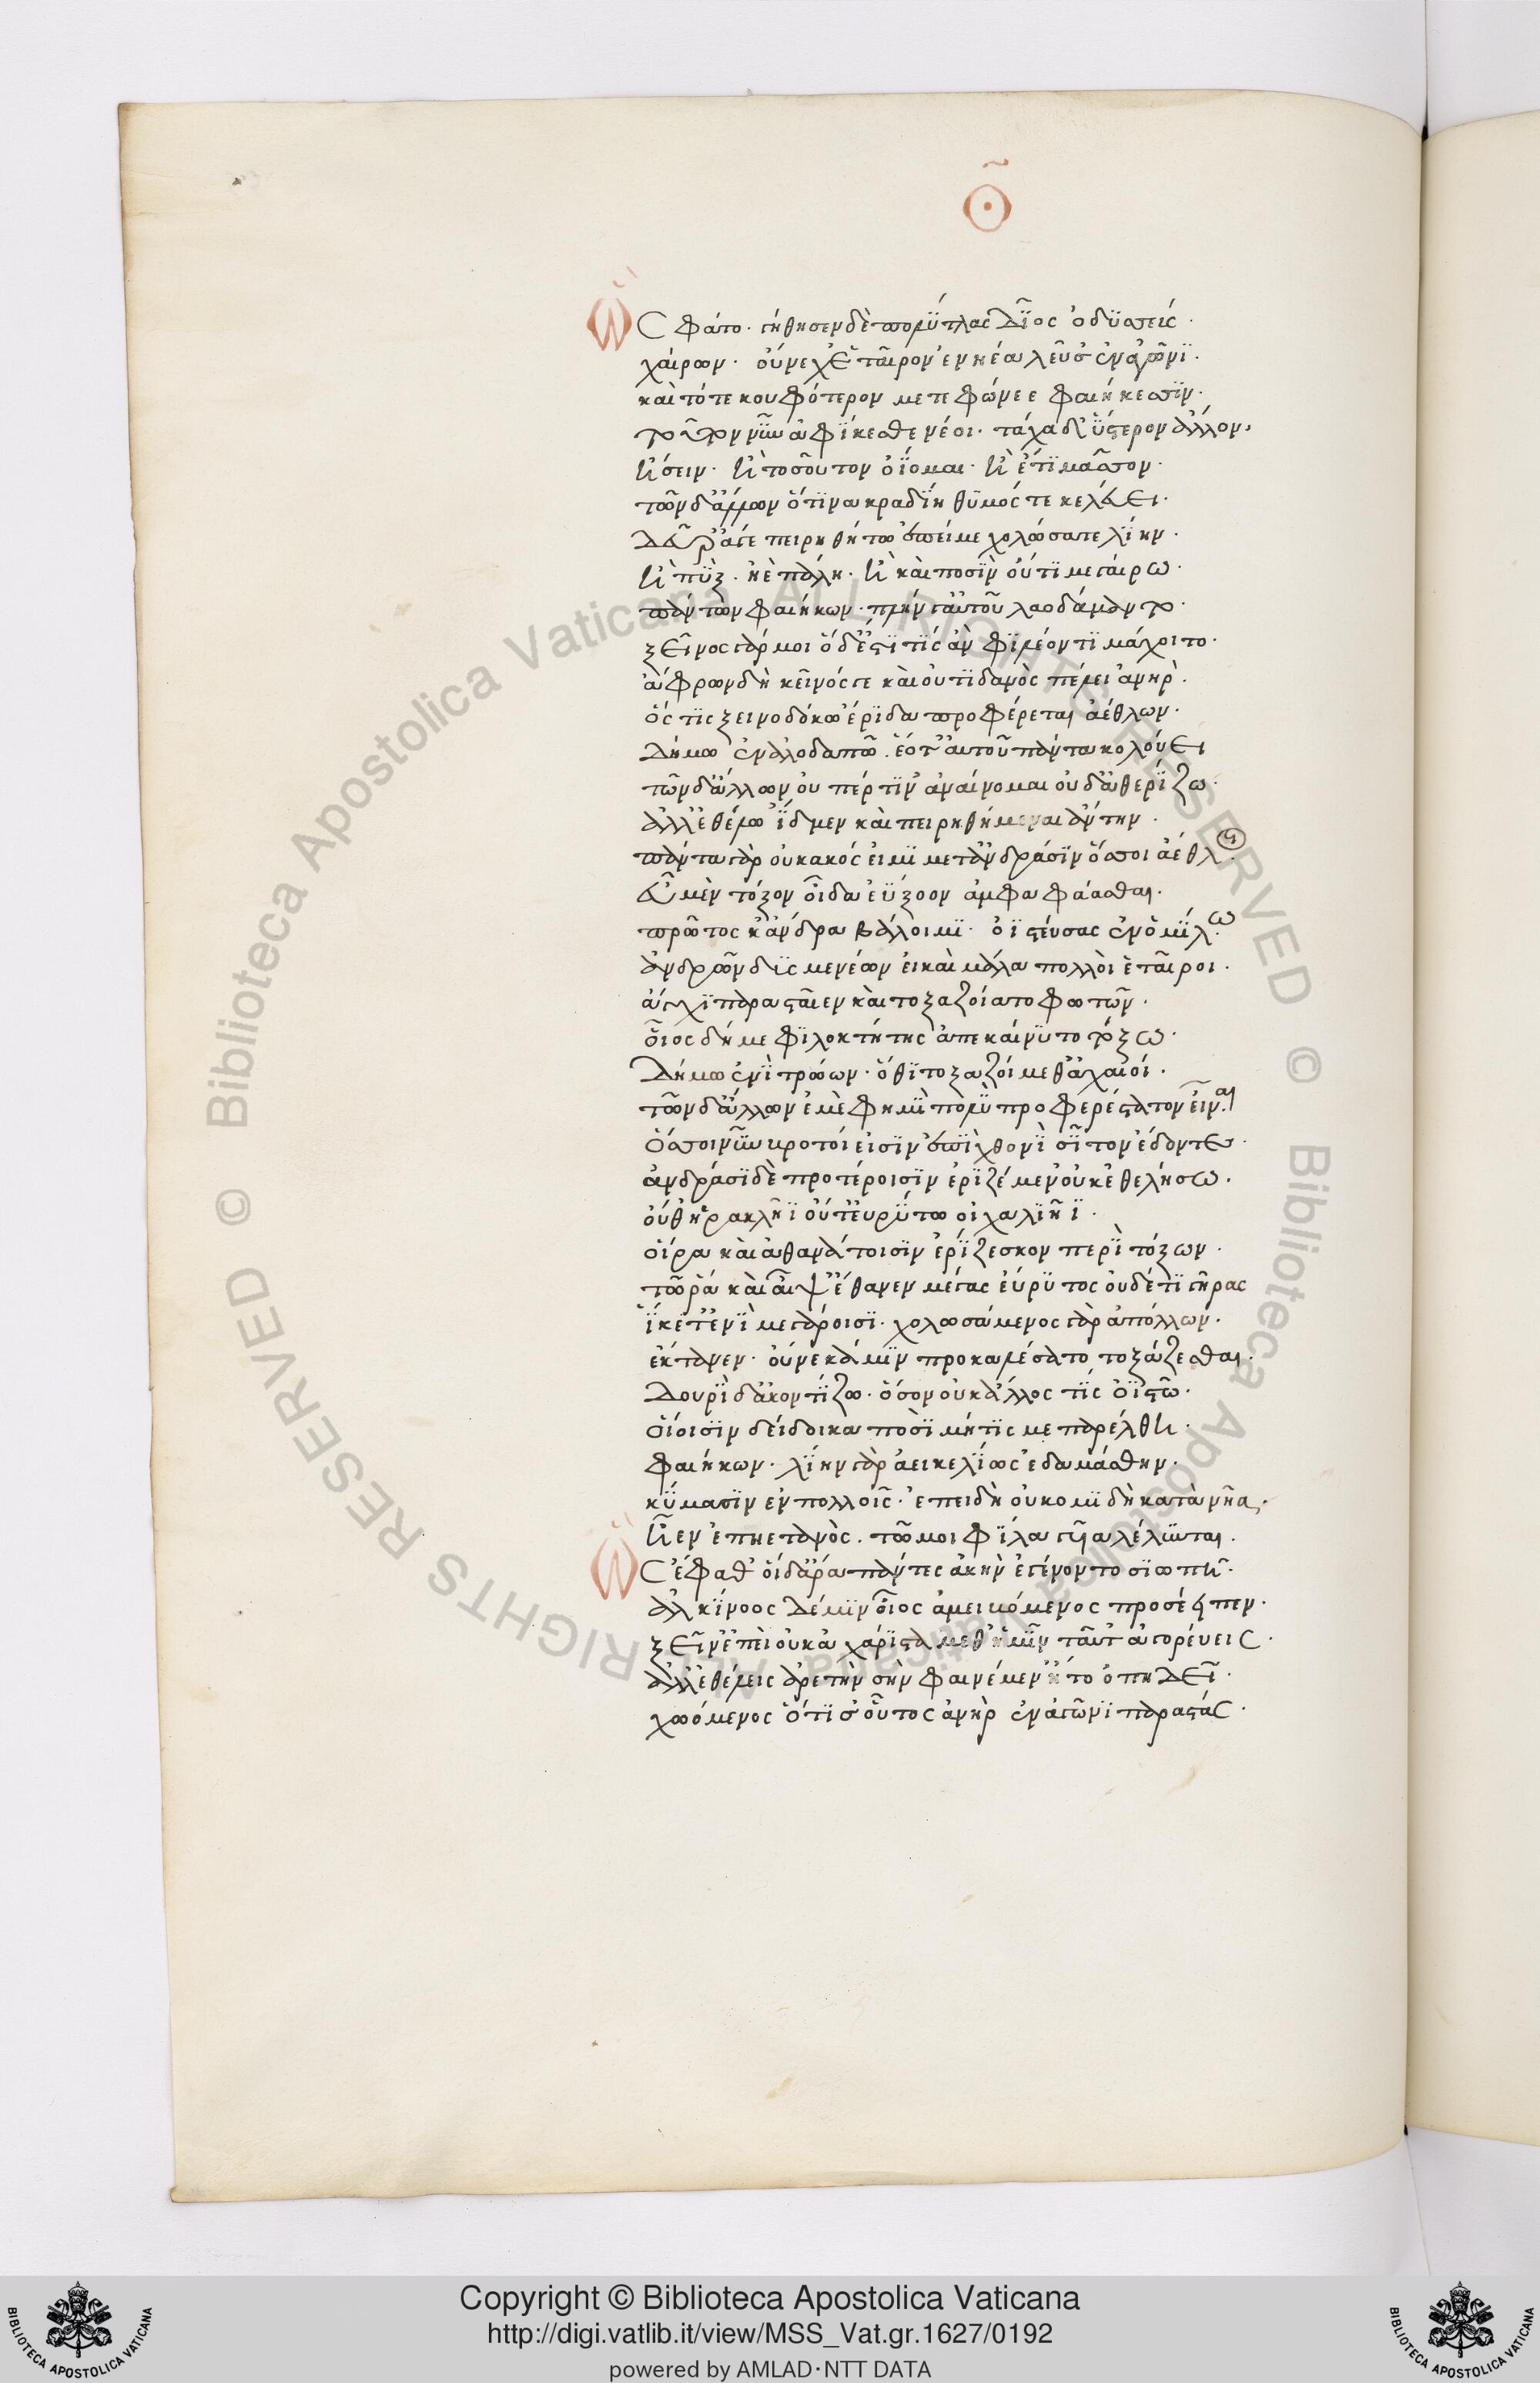 Θ
Ὣς φάτο· γήθησεν δὲ πολύτλας δῖος ὀδυσσεύς·
χαίρων· οὕνεχ᾽ ἑταῖρον ἐνηέα λεῦσ᾽ ἐν ἀγῶνι·
καὶ τότε κουφότερον μετεφώνεε φαιήκεσσιν·
τοῦτον νῦν ἀφίκεσθε νέοι· τάχα δ᾽ ὕστερον ἄλλον·
ἥσειν· ἢ τοσοῦτον ὀΐομαι· ἢ ἔτι μᾶσσον·
τῶν δ᾽ ἄλλων ὅτινα κραδίη θυμός τε κελεύει·
δεῦρ᾽ ἄγε πειρηθήτω ἐπεί με χολώσατε λίην·
ἢ πὺξ· ἠὲ πάλη· ἢ καὶ ποσὶν οὔτι μεγαίρω·
πάντων φαιήκων· πλήν γ᾽ αὐτοῦ λαοδάμαντο·
ξεῖνος γάρ μοι ὅδ᾽ ἐστί τίς ἂν φιλέοντι μάχοιτο·
ἄφρων δὴ κεῖνός γε καὶ οὐτιδανὸς πέλει ἀνὴρ·
ὅς τις ξεινοδόκω ἔριδα προφέρεται ἀέθλων·
δήμω ἐν ἀλοδαπῶ· ἕο τ᾽ αὐτοῦ πάντα κολούει
τῶν δ᾽ ἄλλων οὐ πέρ τιν᾽ ἀναίνομαι οὐδ᾽ ἀθερίζω·
ἀλλ᾽ ἐθέλω ἴδμεν καὶ πειρηθήμεναι ἄντην·
πάντα γὰρ οὐ κακός εἰμι μετ᾽ ἀνδράσιν ὅσσοι ἄεθλοι·
εὖ μὲν τόξον οἶδα ἐΰξοον ἀμφαφάασθαι·
πρῶτος κ᾽ ἄνδρα βάλοιμι· ὀϊστεύσας ἐν ὁμίλω·
ἀνδρῶν δυσμενέων εἰ καὶ μάλα πολλοὶ ἑταῖροι·
ἄγχι παρασταῖεν καὶ τοξαζοίατο φωτῶν·
οἶος δή με φιλοκτήτης ἀπεκαίνυτο τόξω·
δήμω ἐνὶ τρώων· ὅθι τοξαζοίμεθ᾽ ἀχαιοί·
τῶν δ᾽ ἄλλων ἐμὲ φημὶ πολὺ προφερέστατον εἶναι
ὅσσοι νῦν βροτοί εἰσιν ἐπὶ χθονὶ σῖτον ἔδοντες·
ἀνδράσι δὲ προτέροισιν ἐριζέμεν οὐκ ἐθελήσω·
οὔθ᾽ ἡρακλῆϊ οὔτ᾽ εὐρύτω οἰχαλιῆϊ·
οἵ ῥα καὶ ἀθανάτοισιν ἐρίζεσκον περὶ τόξων·
τῶ ῥὰ καὶ αἶψ᾽ ἔθανεν μέγας εὔρυτος οὐδέ τι γῆρας
ἵκετ᾽ ἐνὶ μεγάροισι· χολωσάμενος γὰρ ἀπόλλων·
ἔκτανεν· οὕνεκά μιν προκαλέσατο τοξάζεσθαι·
δουρὶ δ᾽ ἀκοντίζω· ὅσον οὐκ ἄλλος τίς ὀϊστῶ·
οἴοισιν δείδοικα ποσὶ μήτις με παρέλθη·
φαιήκων· λίην γὰρ ἀεικελίως ἐδαμάσθην·
κύμασιν ἐν πολλοῖς· ἐπειδὴ οὐ κομιδὴ κατὰ νῆα·
ἦεν ἐπηετανὸς· τῶ μοι φίλα γυῖα λέλυνται·
Ὣς ἔφαθ᾽ οἱ δ᾽ ἄρα πάντες ἀκὴν ἐγένοντο σιωπῆ·
ἀλκίνοος δέ μιν οἶος ἀμειβόμενος προσέειπεν·
ξεῖν᾽ ἐπεὶ οὐκ ἀχάριστα μεθ᾽ ἡμῖν ταῦτ᾽ ἀγορεύεις·
ἀλλ᾽ ἐθέλεις ἀρετὴν σὴν φαινέμεν ἥ τοι ὀπηδεῖ·
χωόμενος ὅτι σ᾽ οὗτος ἀνὴρ ἐν ἀγῶνι παραστάς·
Copyright © Biblioteca Apostolica Vaticana
http://digi.vatlib.it/view/MSS_Vat.gr.1627/0192
powered by AMLAD·NTT DATA
BIBLIOTECA APOSTOLICA VATICANA
BIBLIOTECA APOSTOLICA VATICANA
© Biblioteca Apostolica Vaticana ALL RIGHTS RESERVED © Biblioteca Apostolica Vaticana ALL RIGHTS RESERVED